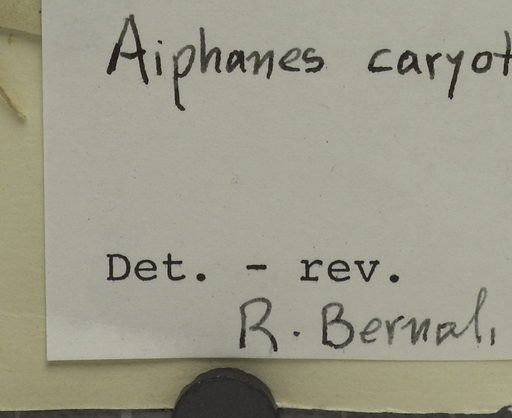 Aiphanes caryot
Det. - rev.
R. Bernal,